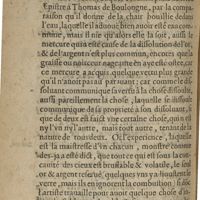 Epistre à Thomas de Boulongne, par la compa-
raison qu'il donne de la chair bouillie dedans
l'eau, laquelle il aduoüe bien auoir esté eau com-
mune, mais il nie qu'alors elle le soit, aussi le
mercure qui a esté cause de la dissolution de l'or,
& de l'argent n'est plus commun, encores que la
graisse ou noirceur nageante en aye esté ostee, car
ce mercure a acquis quelque vertu plus grande
qu'il n'auoit pas auparauant; car comme le dis-
soluant communique sa vertu à la chose dissoulte,
aussi pareillement la chose, laquelle se dissoult
communique de sa proprieté à son dissoluant,
que de deux est faict vne certaine chose, qui n'est
ny l'vn ny l'autre, mais tout autre, tenant de la
nature de tous deux. Or l'experience, laquelle
est la maistresse d'vn chacun, monstre comme
i'ay des-ja dict, que tout ce qui est sous la con-
cauité des cieux est bruslable & volatile, le seul
or & argent reserué, quelques vns y adioustent le
verre, mais ils en ignorent la combustion, si donc
l'artiste trauaille pour auoir quelque chose d'in-